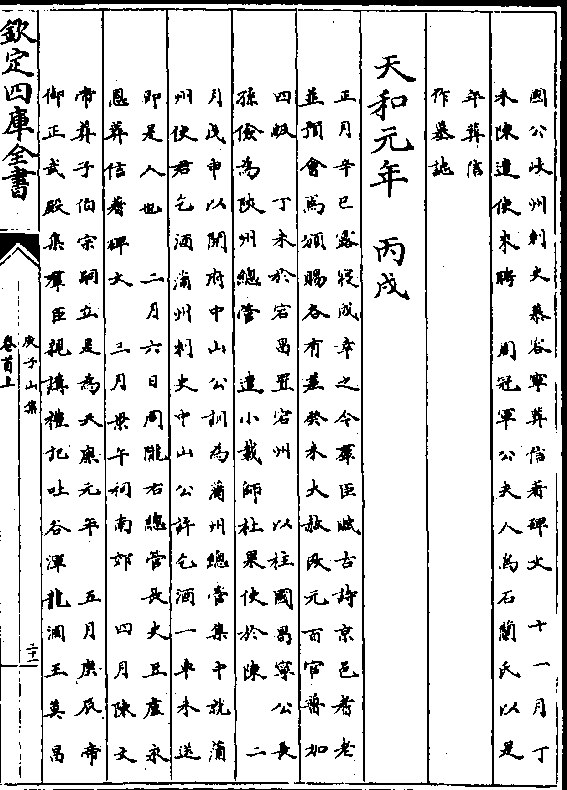 國公峽州刺史慕容寧葬信著碑文　十一月丁
未陳遣使來聘　周冠軍公夫人烏石蘭氏以是
年葬信
作墓誌
天和元年　丙戌
正月辛巳露寢成幸之令羣臣賦古詩京邑耆老
並預會焉頒賜各有差癸未大赦改元百官普加
四級　丁未於宕昌置宕州　以柱國昌寧公長
孫儉為陜州總管　遣小載師杜杲使於陳　二
月戊申以開府中山公訓為蒲州總管集中就蒲
州使君乞酒蒲州刺史中山公許乞酒一車未送
即是人也　二月六日周隴右總管長史豆盧永
恩葬信著碑文　三月景午祠南郊　四月陳文
帝葬子伯宗嗣立是為天康元年　五月庚辰帝
御正武殿集羣臣親講禮記吐谷渾龍涸王莫昌
欽定四庫全書
庾子山集
卷首上
二十一